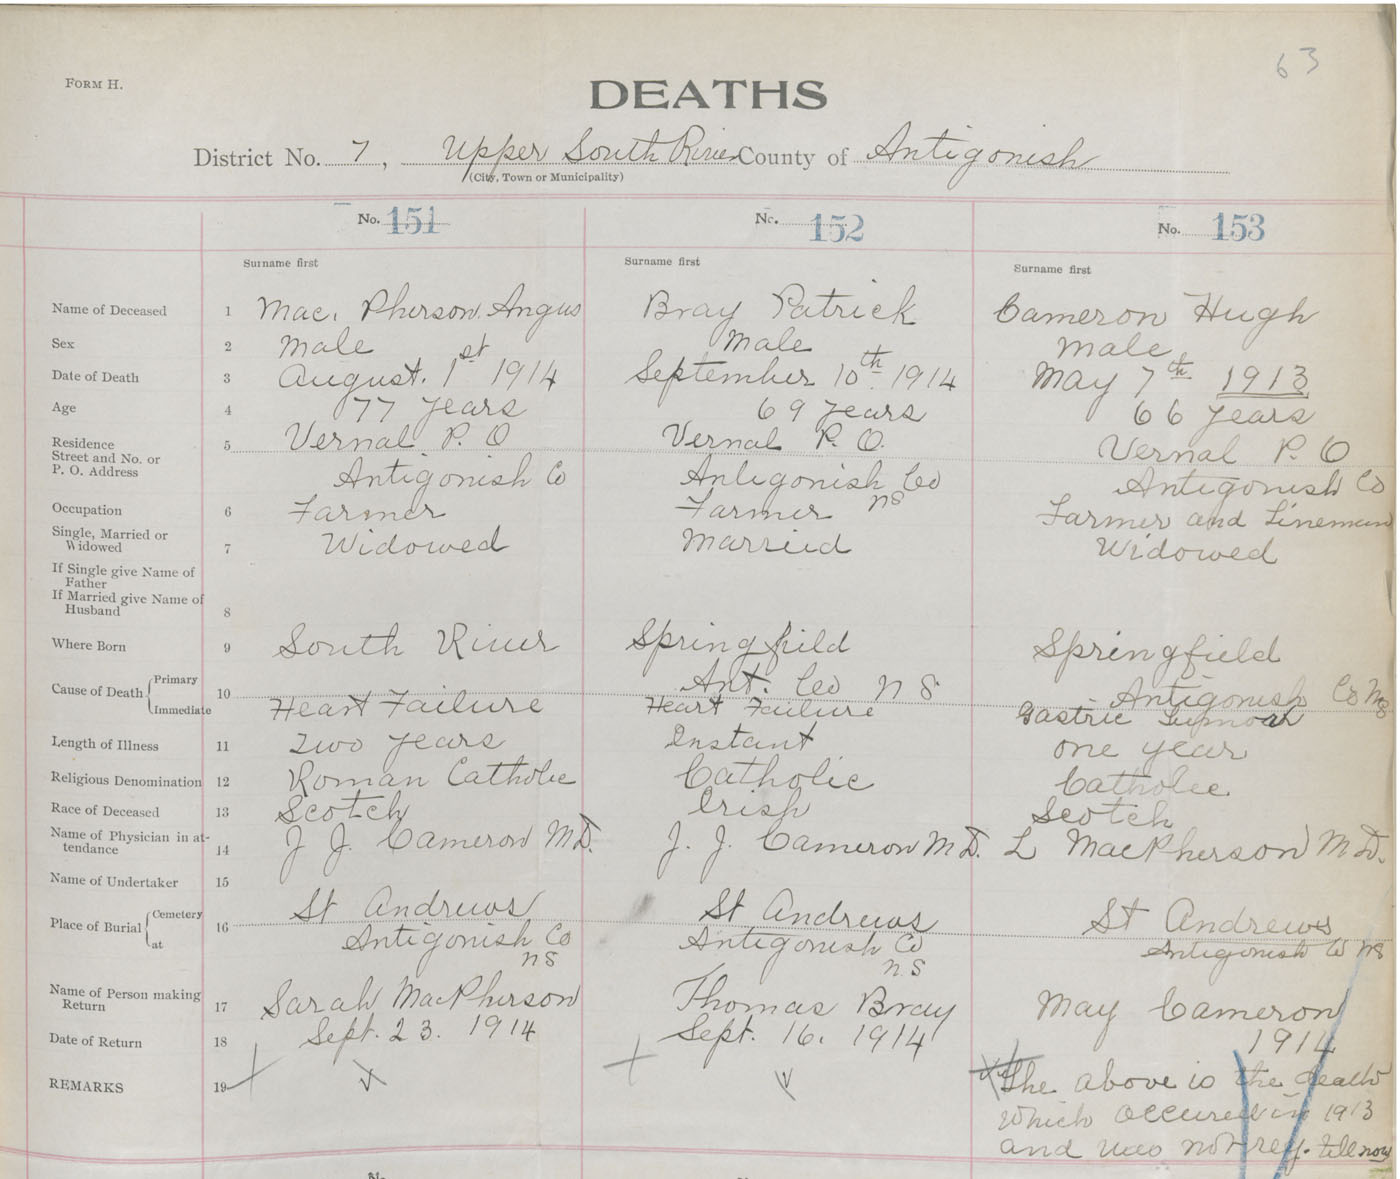 63
FORM H.
DEATHS
District No. 7, Upper South River County of Antigonish
(City, Town or Municipality)
No. 151 No. 152 No. 153
Surname first Surname first Surname first
Name of Deceased 1 Mac. Pherson. Angus Bray Patrick Cameron Hugh
Sex 2 Male Male Male
Date of Death 3 August. 1st 1914 September 10th 1914 May 7th 1913
Age 4 77 years 69 years 66 years
Residence 5 Vernal P. O Vernal P. O. Vernal P. O
Street and No. or
P. O. Address Antigonish Co Antigonish Co Antigonish Co
NS
Occupation 6 Farmer Farmer Farmer and Lineman
Single, Married or
Widowed 7 Widowed Married Widowed
If Single give Name of
Father
If Married give Name of
Husband 8
Where Born 9 South River Springfield Springfield
Cause of Death Primary 10 Ant. Co N S Antigonish Co NS
Immediate Heart Failure Heart Failure Gastric
Length of Illness 11 Two years Instant one year
Religious Denomination 12 Roman Catholic Catholic Catholic
Race of Deceased 13 Scotch Irish Scotch
Name of Physician in at-
tendance 14 J. J. Cameron M D. J. J. Cameron M D. L MacPherson M D.
Name of Undertaker 15
Place of Burial Cemetery 16 St Andrews St Andrews St Andrews
at Antigonish Co Antigonish Co Antigonish Co NS
NS N.S
Name of Person making
Return 17 Sarah MacPherson Thomas Bray May Cameron
Date of Return 18 Sept. 23. 1914 Sept. 16. 1914 1914
REMARKS 19 The above is the death
which occured in 1913
and was not reg. till now
No. No.